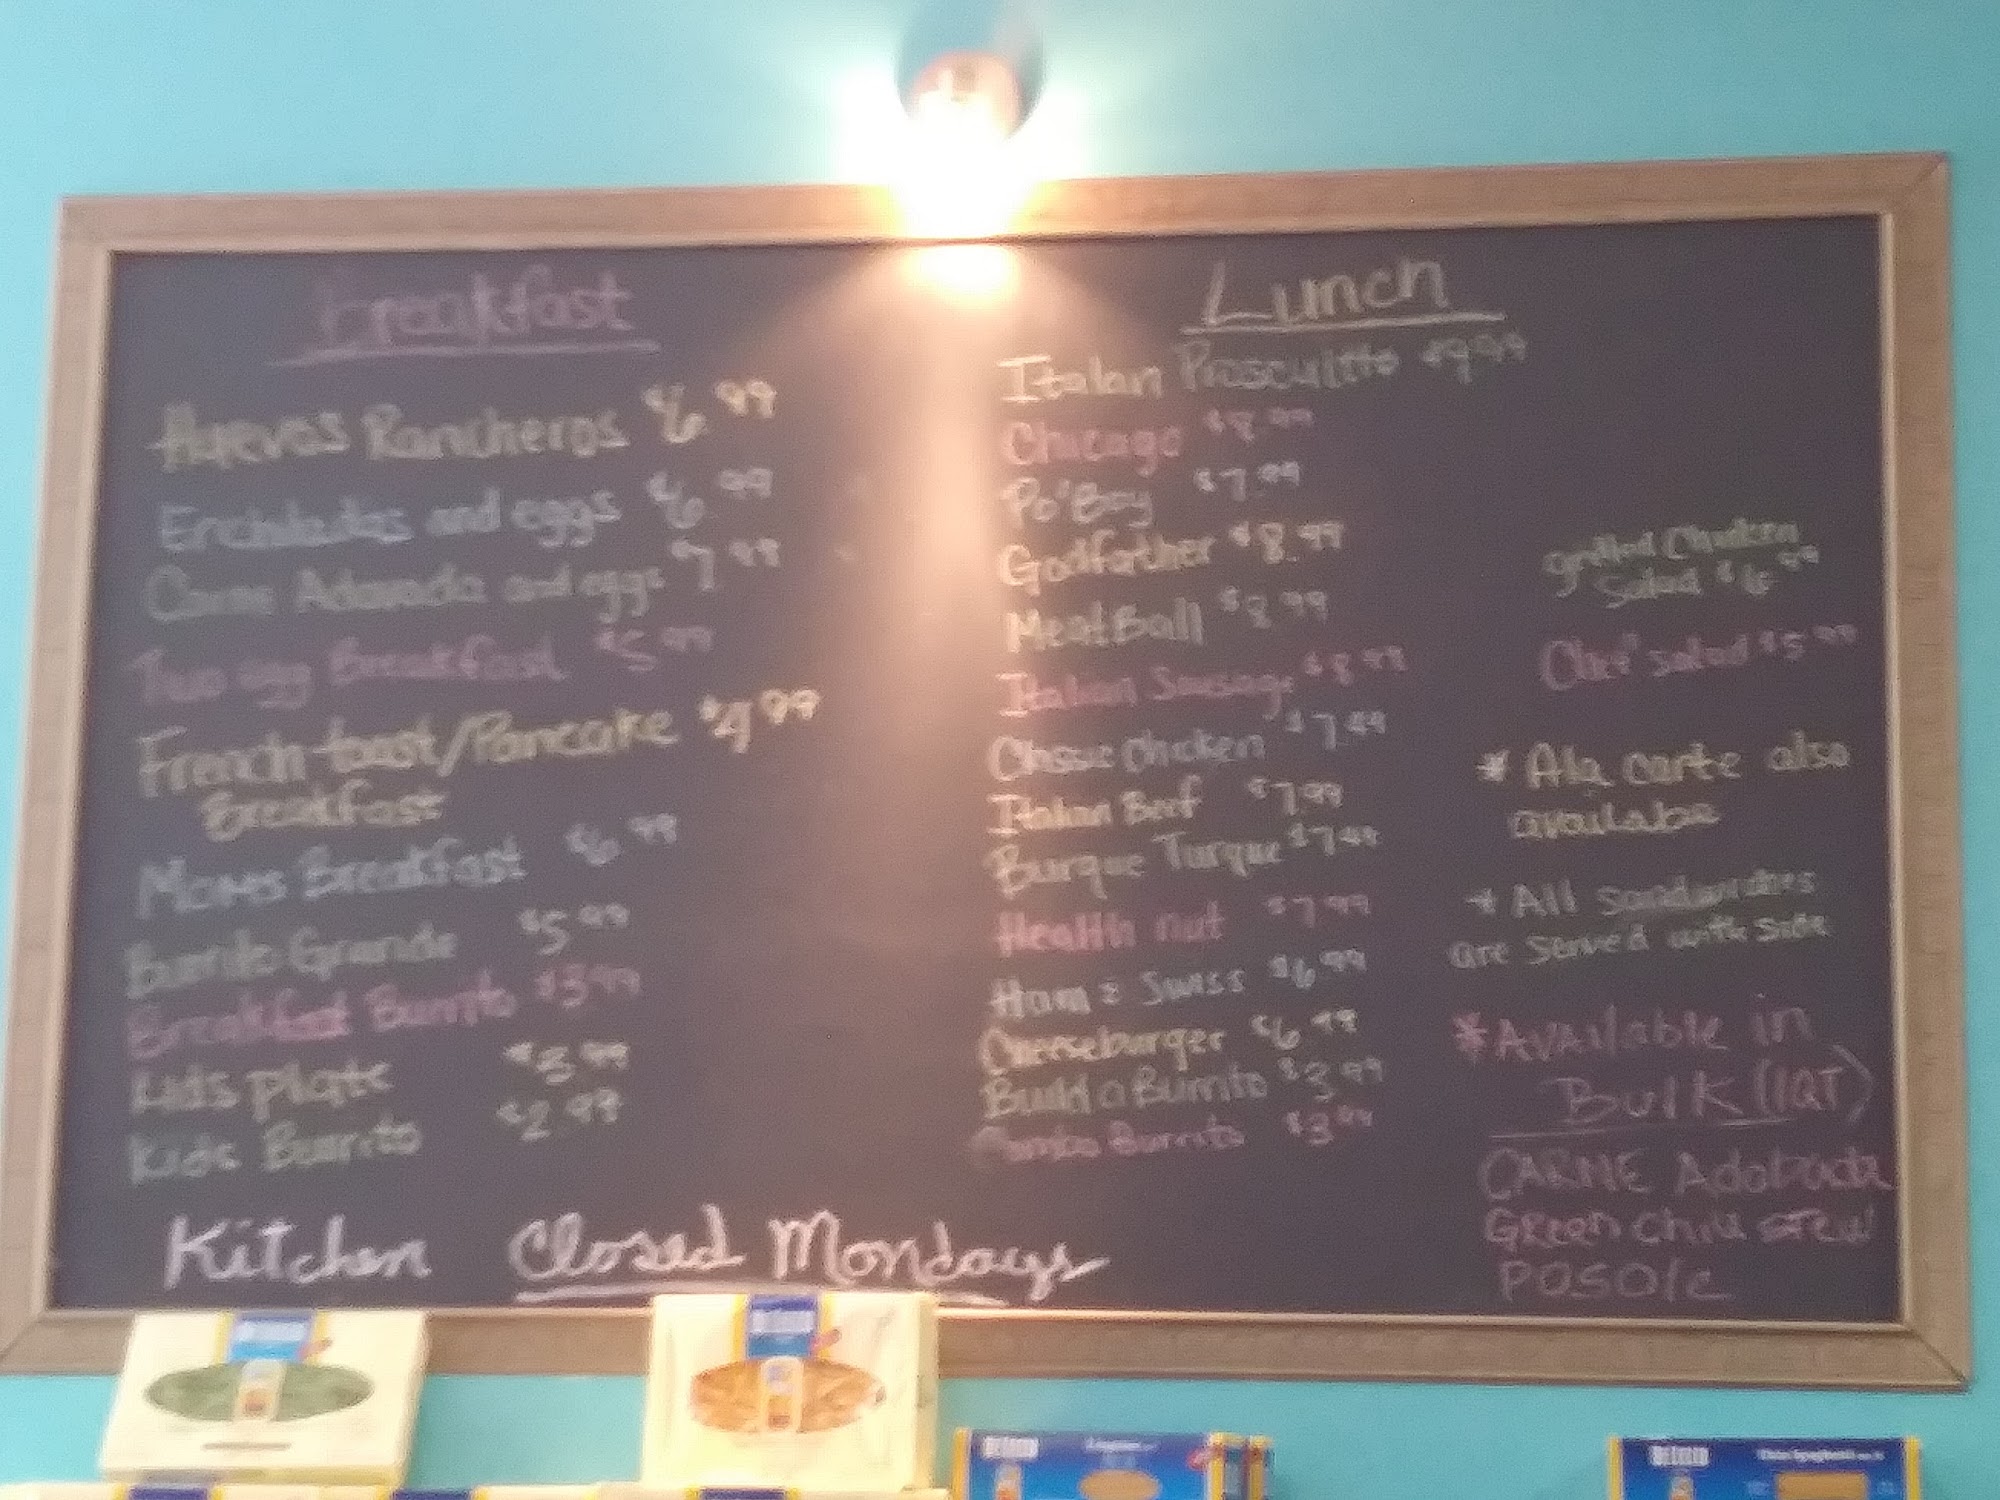 breakfast
Huevos Rancheros $6.99
Enchiladas and eggs $6.99
Carne Adovada and eggs $7.99
Two egg Breakfast $5.99
French toast/Pancake $4.99
Breakfast
Moms Breakfast $6.99
Burrito Grande $5.99
Breakfast Burrito $3.99
Kids plate $3.99
Kids Burrito $2.99
Kitchen Closed Mondays
Lunch
Italian Proscuitto $9.99
Chicago $8.99
Po'Boy $7.99
Godfather $8.99
MeatBall $8.99
Italian Sausage $8.99
Classic Chicken $7.49
Italian Beef $7.99
Burque Turque $7.49
Health nut $7.99
Ham & Swiss $6.99
Cheeseburger $6.99
Build a Burrito $3.99
Burrito $3.99
grilled Chicken
Salad $6.99
Chef salad $5.99
* Ala carte also
available
* All sandwiches
are served with side
*Available in
Bulk (1QT)
CARNE Adobada
Green Chili stew
POSOle